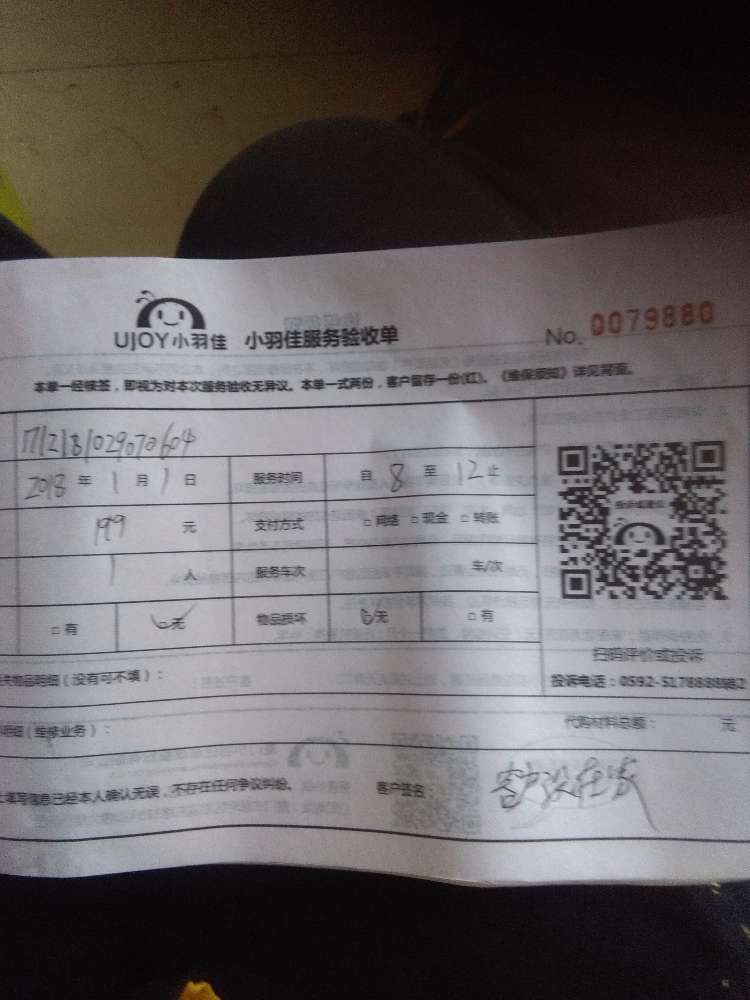 UJOY小羽佳 小羽佳服务验收单 No. 0079880
本单一经核签，即视为对本次服务验收无异议。本单一式两份，客户留存一份(红)。《维保须知》详见背面。
1712181029070604
2018 年 1 月 1 日 服务时间 自 8 至 12 止
199 元 支付方式 □ 网络 □ 现金 □ 转账
1 人 服务车次 车/次
□ 有 □无 物品损坏 □无 □ 有
扫码评价或投诉
失物品明细（没有可不填）：
投诉电话：0592-5178888转2
明细（维修业务）： 代购材料总额： 元
填写信息已经本人确认无误，不存在任何争议纠纷。 客户签名： 客户没在家